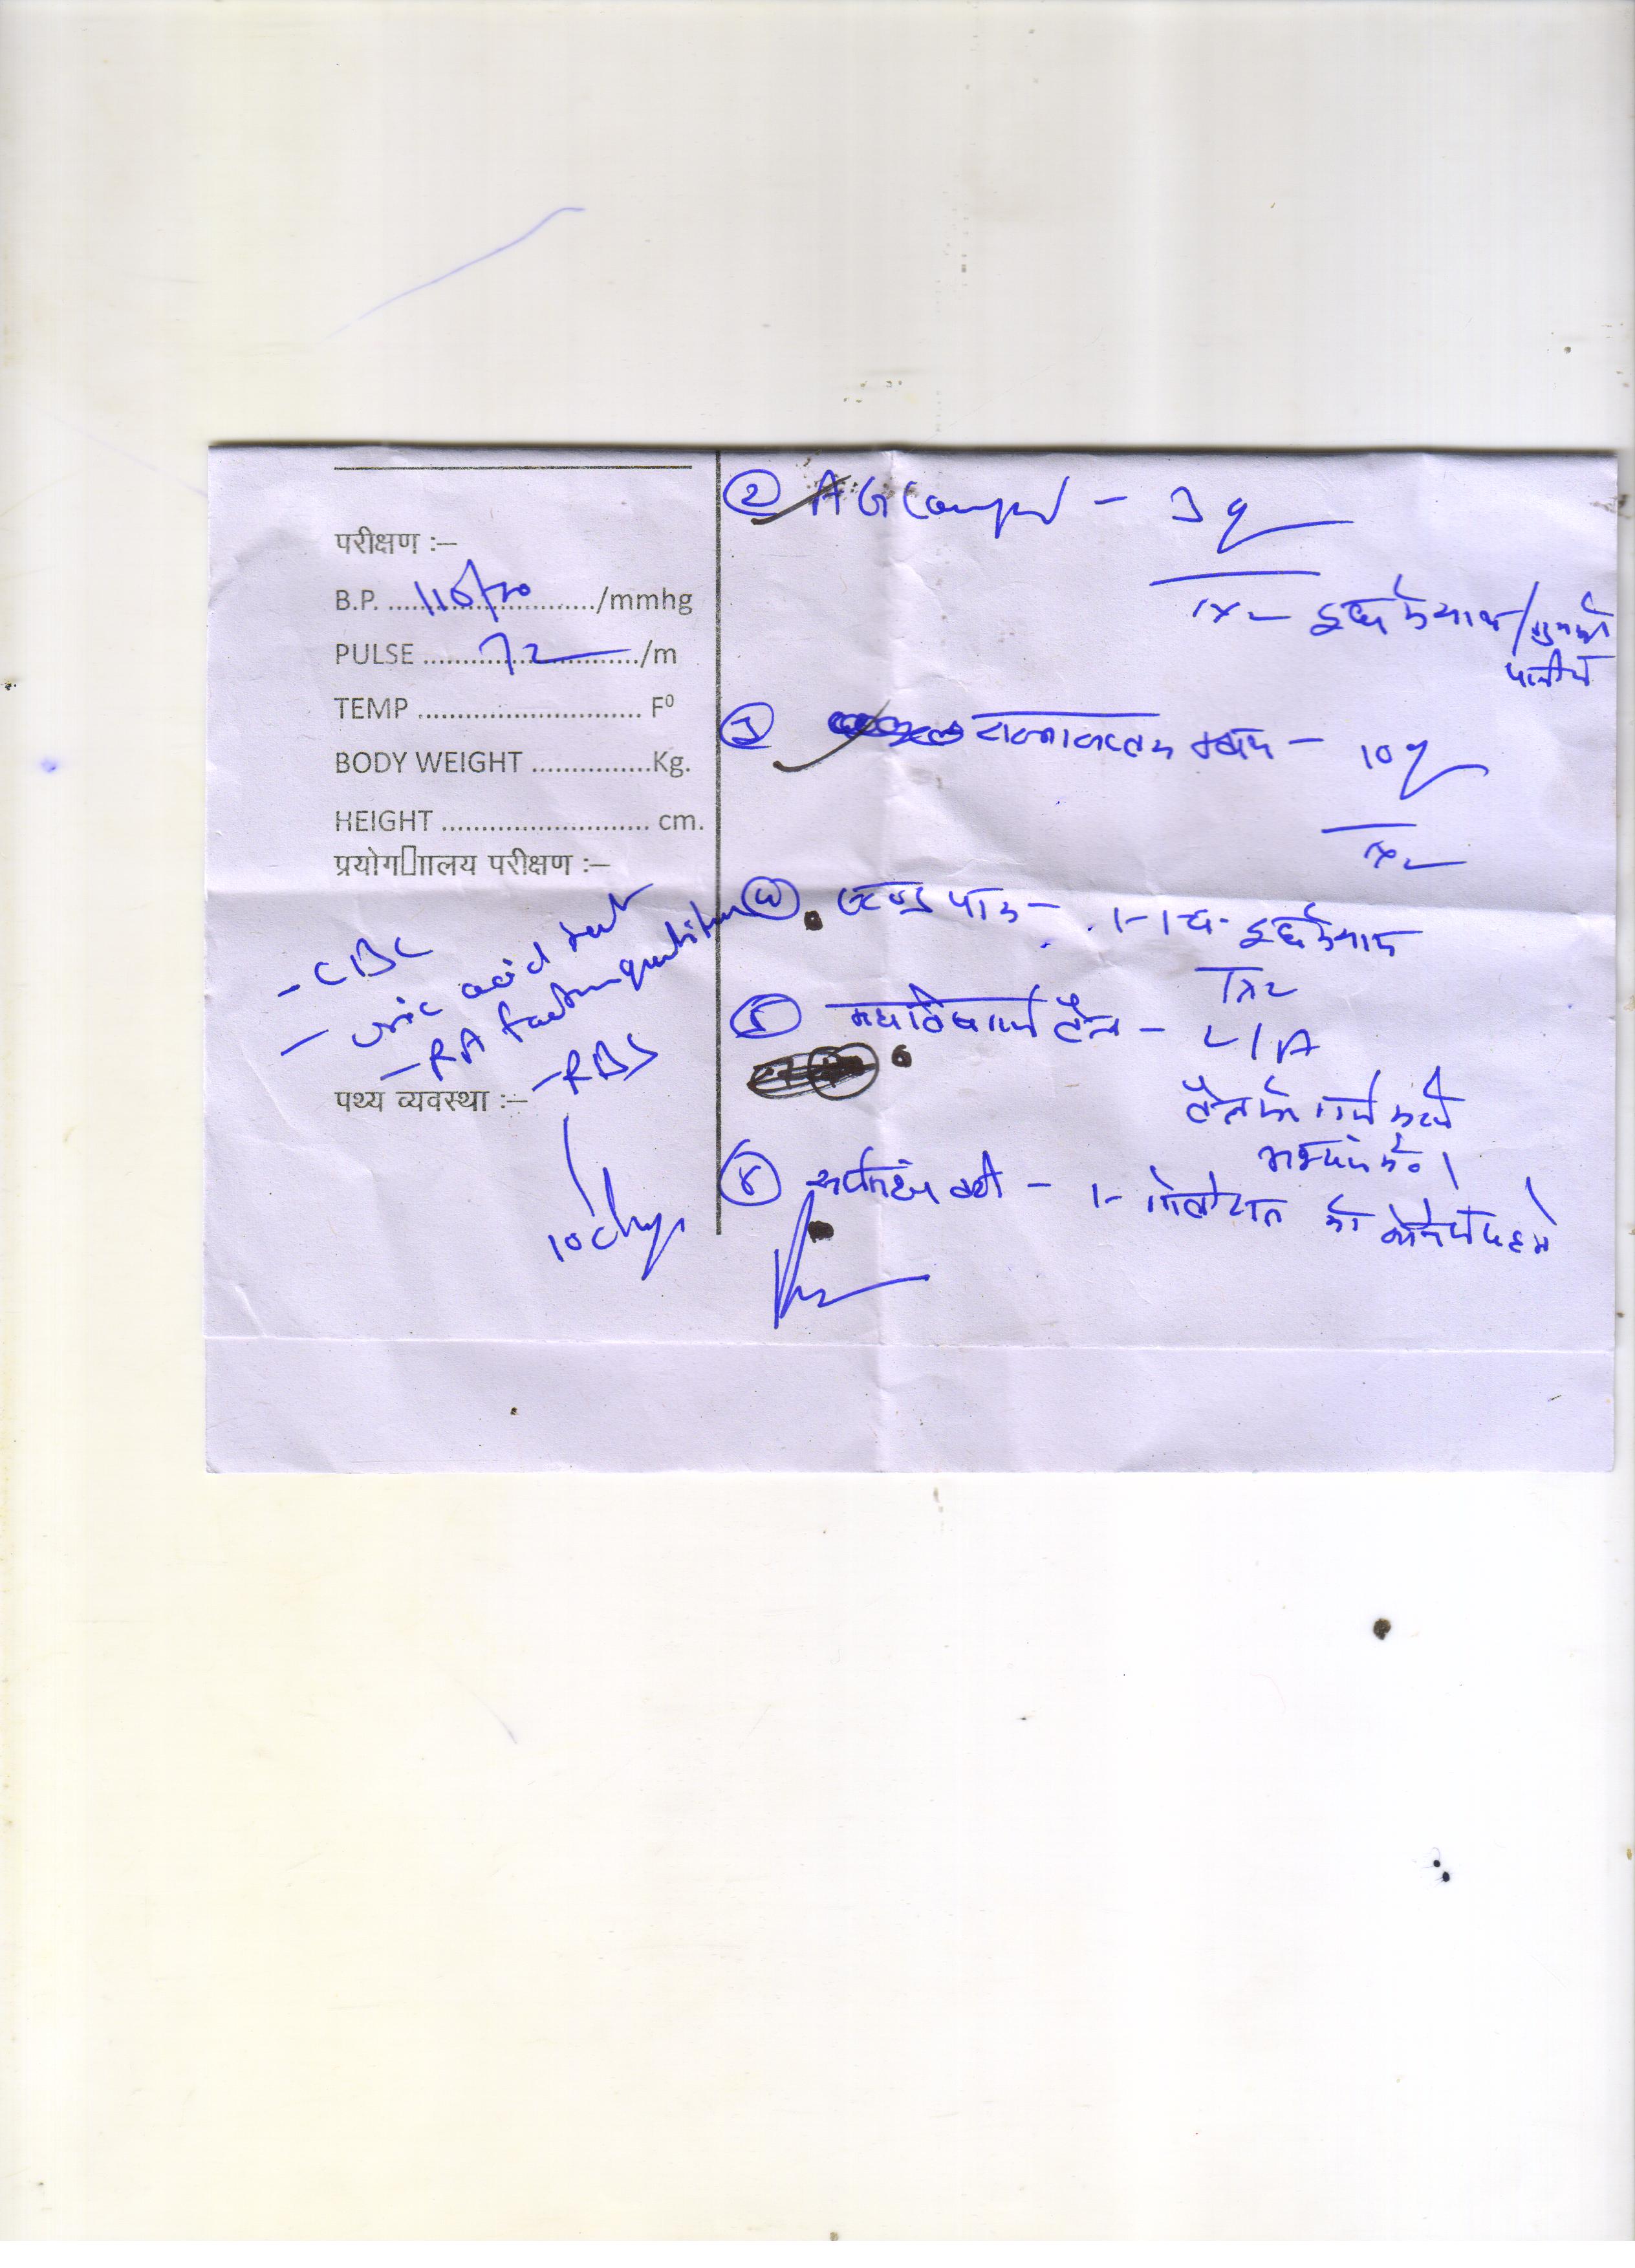 परीक्षण :–
B.P. ........110/70........../mmhg
PULSE ......72........../m
TEMP ............................ F⁰
BODY WEIGHT ...............Kg.
HEIGHT .......................... cm.
प्रयोग▯ाालय परीक्षण :–
- CBC
- uric acid test
- RA factor quantitative
- RBS
पथ्य व्यवस्था :–
10 days
② AG Compd – 3g
1x2 दूध के साथ / गुनगुने
पानी से
③ क्वाथ – 10g
1x2
④ एरण्ड पाक – 1-1 च. दूध के साथ
1x2
⑤ महाविषगर्भ तैल – L/A
तैल को गर्म करके
6
⑥ वटी – 1- गोली रात को सोने से पहले